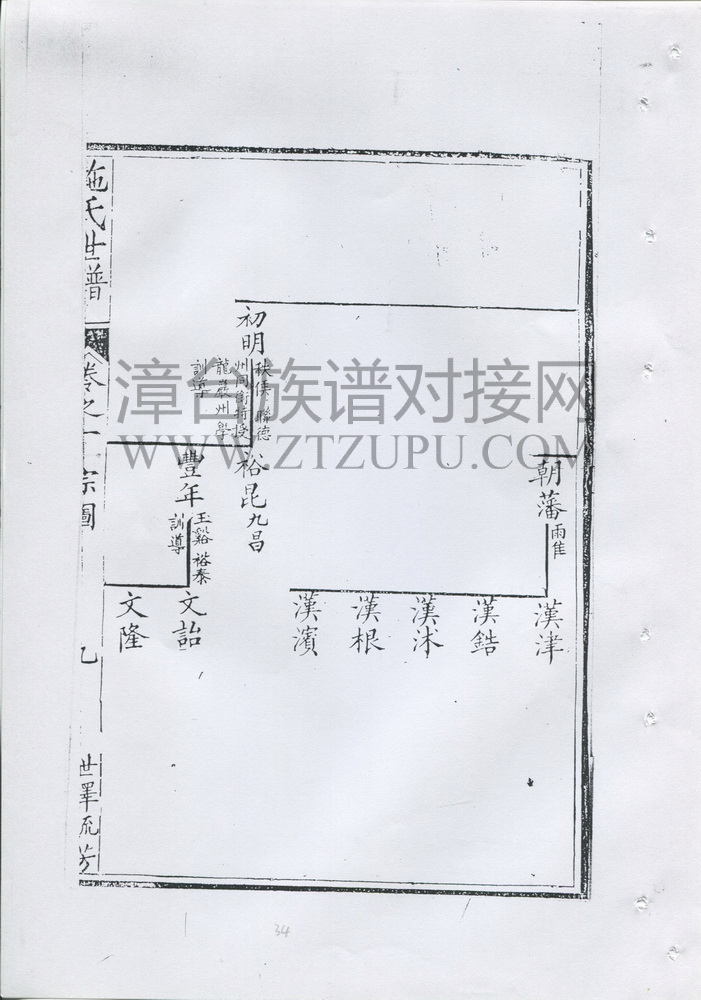 朝藩
雨隹
漢津
漢鋯
漢沭
漢根
漢濱
初明
秩侯 聯德
州同銜特授
龍巖州學
訓導
裕昆
九昌
豐年
玉谿 裕泰
訓導
文詒
文隆
施氏世譜
卷之十
宗圖
乙
世澤流芳
漳台族谱对接网
WWW.ZTZUPU.COM
34